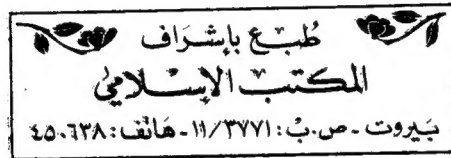 طُبع بإشراف
المكتب الإسلامي
بَيروت - ص.ب: ١١/٣٧٧١ - هَاتف: ٤٥٠٦٣٨